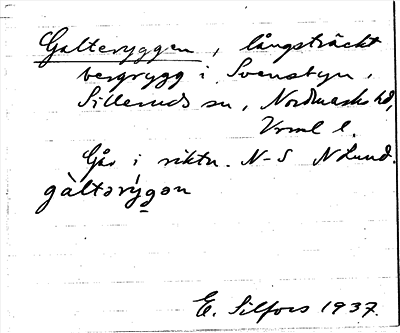 Galteryggen, långsträckt
bergrygg i Svenstyn,
Silleruds sn, Nordmarks hd,
Vrml l.
Går i riktn. N-S N Lund.
gàltərýgən
E. Silfors 1937.